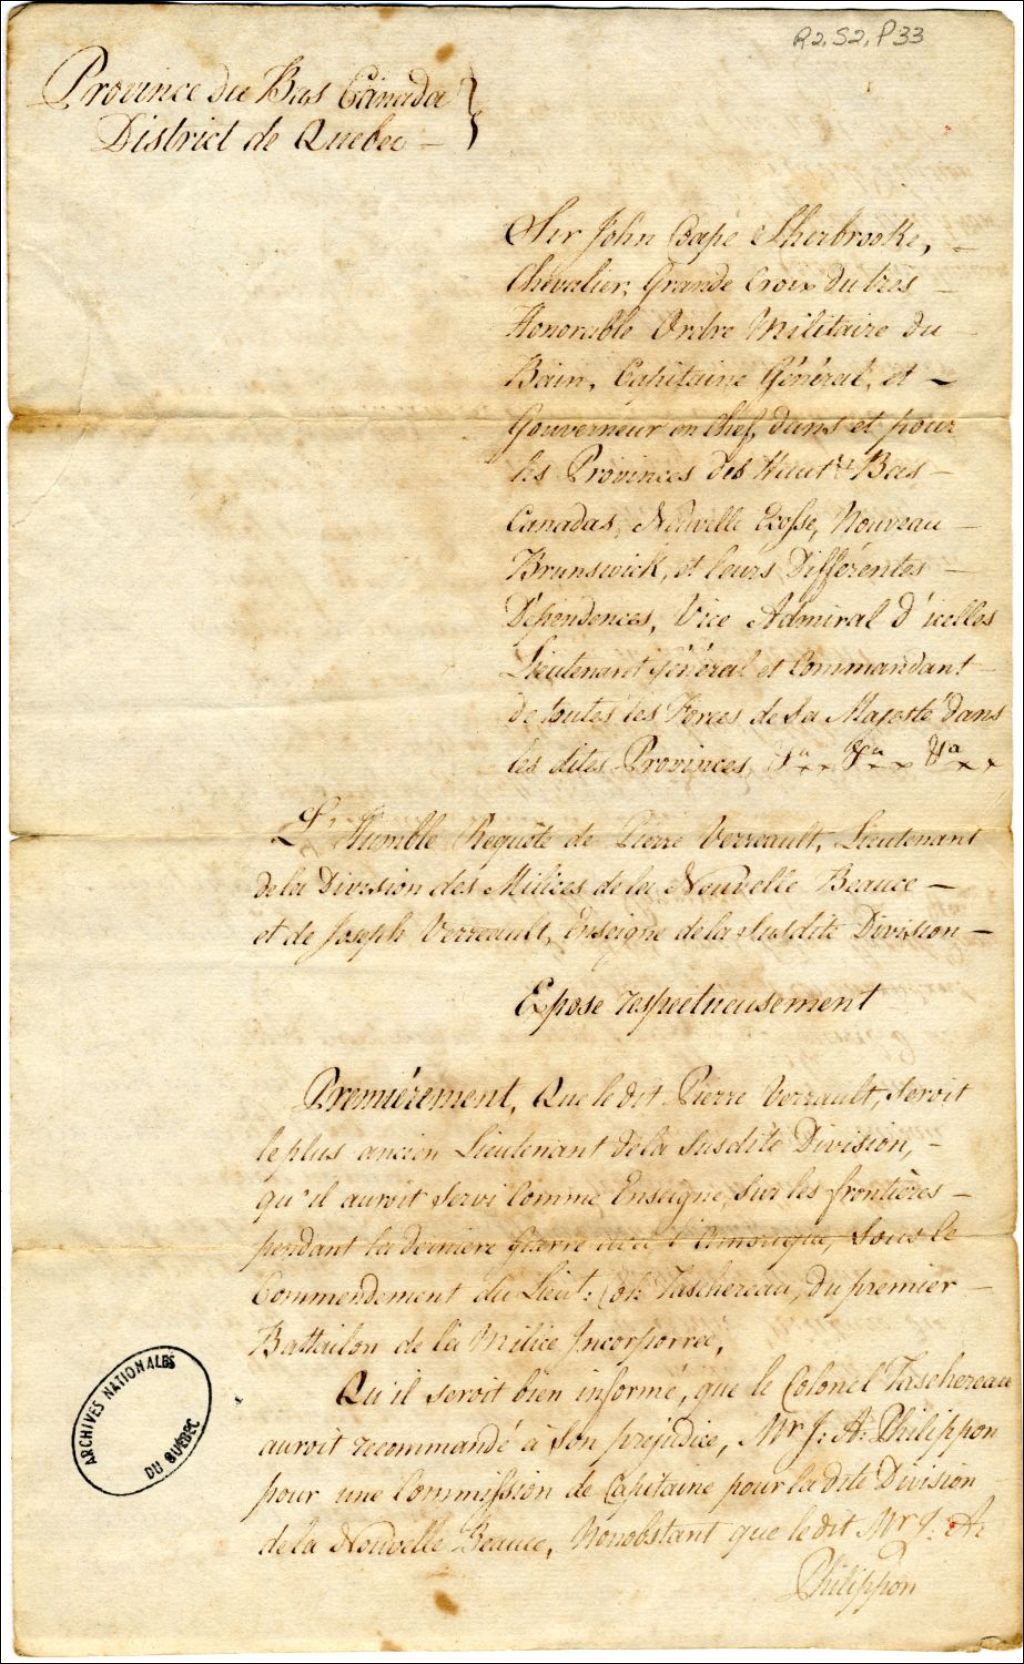 R2, S2, P33
Province du Bas Canada }
District de Quebec —
Sir John Coape Sherbrooke, —
Chevalier, Grande Croix du tres —
Honorable Ordre Militaire du
Bain, Capitaine Général, et —
Gouverneur en Chef, dans et pour
les Provinces des Haut & Bas —
Canadas, Nouvelle Ecosse, Nouveau —
Brunswick, et leurs Différentes —
Dépendences, Vice Admiral d'icelles
Lieutenant Général et Commandant —
de toutes les Forces de Sa Majesté dans
les dites Provinces, &a &a &a
L'Humble Requête de Pierre Verreault, Lieutenant
de la Division des Milices de la Nouvelle Beauce —
et de Joseph Verreault, Enseigne de la Susdite Division —
Expose respectueusement
Premièrement, Que le dit Pierre Verrault, seroit
le plus ancien Lieutenant de la Susdite Division, —
qu'il auroit servi Comme Enseigne, sur les frontières —
pendant la derniere Guerre l'Amerique, sous le
Commendement du Lieut: Col: Taschereau, du premier —
Battailon de la Milice Incorporrée,
Qu'il seroit bien informé, que le Colonel Taschereau
auroit recommandé à son préjudice, Mr J: A: Philippon
pour une Commission de Capitaine pour la dite Division
de la Nouvelle Beauce, Nonobstant que le dit Mr J: A:
Philippon
ARCHIVES NATIONALES
DU QUÉBEC